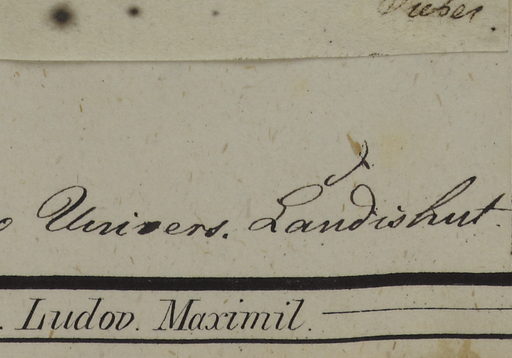 o Univers. Landishut.
. Ludov. Maximil.